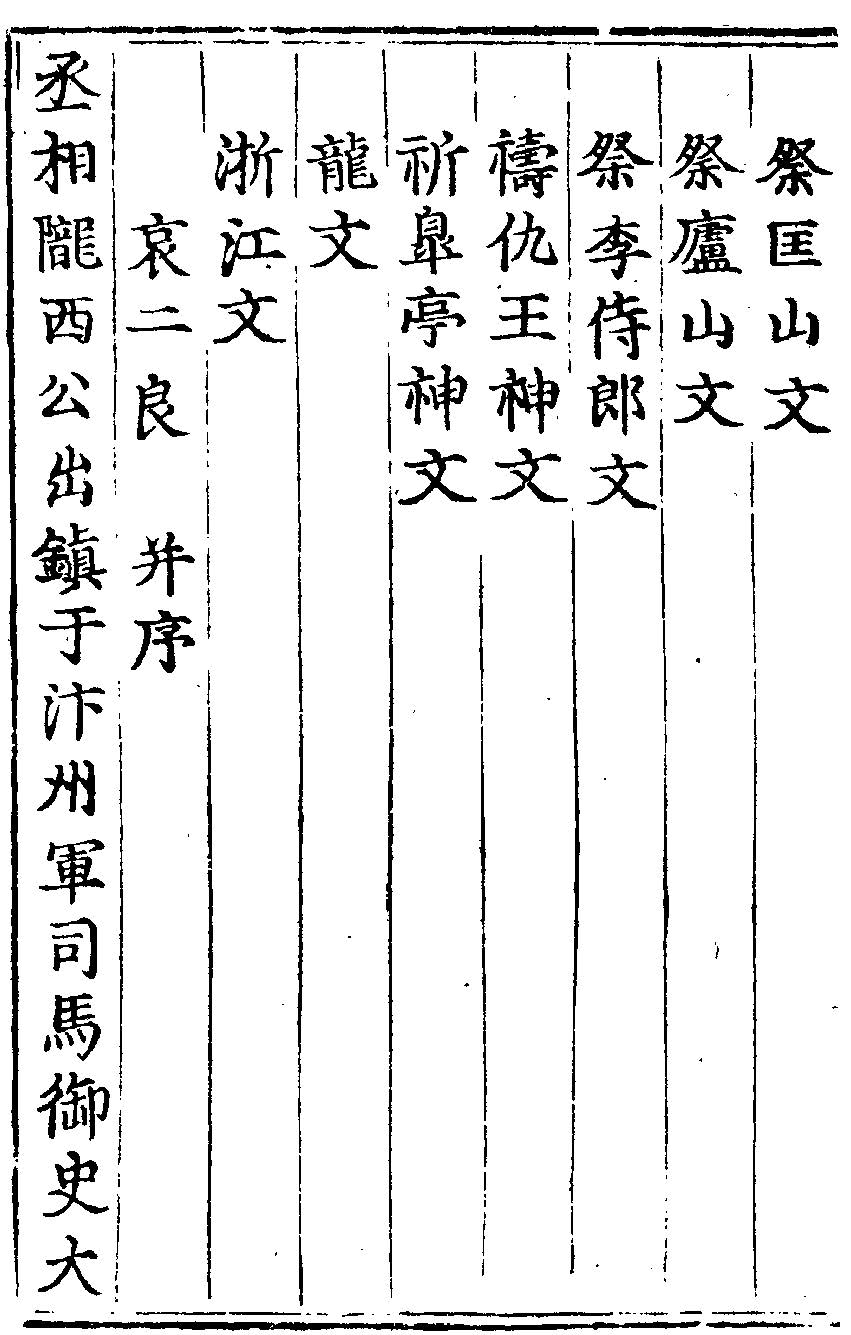 祭匡山文
祭廬山文
祭李侍郎文
禱仇王神文
祈皐亭神文
龍文
浙江文
哀二良 并序
丞相隴西公出鎮于汴州軍司馬御史大